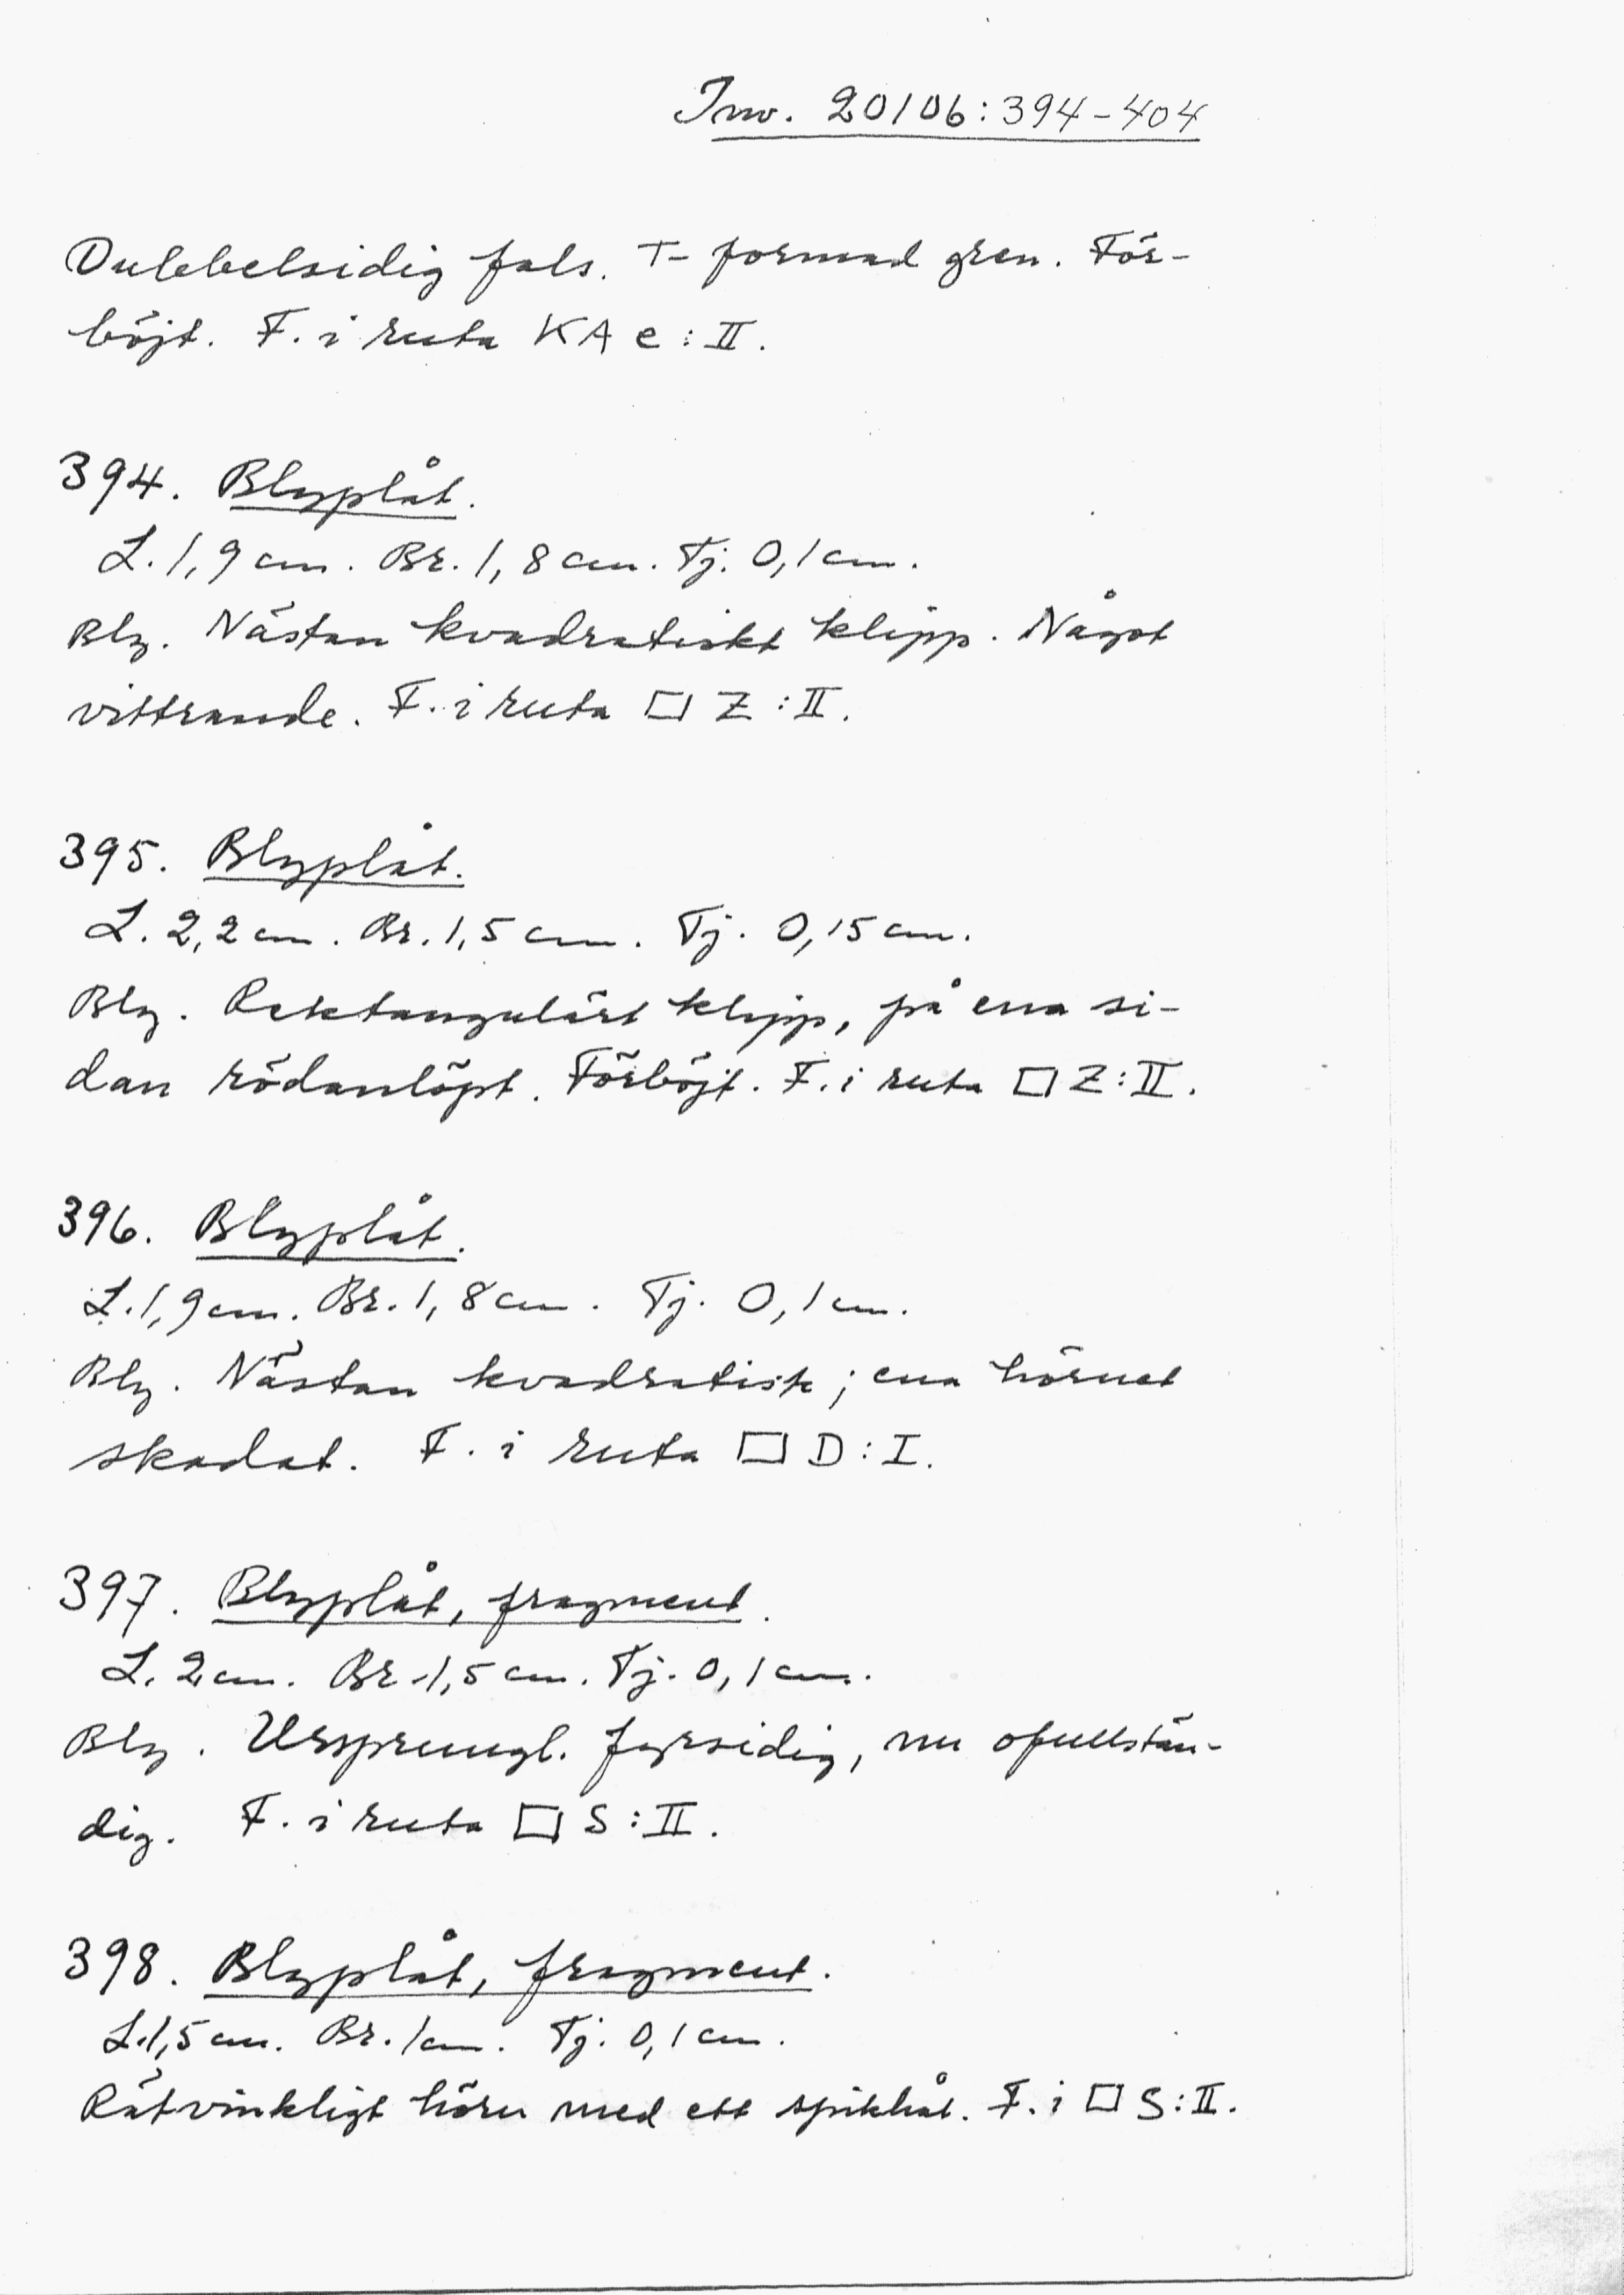 Inv. 20106:394-404
Dubbelsidig fals. T-formad gren. För-
böjt. F. i ruta KA e:II.
394. Blyplåt.
L. 1,9 cm. Br. 1,8 cm. Tj. 0,1 cm.
Bly. Nästan kvadratiskt klipp. Något
vittrande. F. i ruta □ Z:II.
395. Blyplåt.
L. 2,2 cm. Br. 1,5 cm. Tj. 0,15 cm.
Bly. Rektangulärt klipp, på ena si-
dan rödanlöpt. Förböjt. F. i ruta □ Z:II.
396. Blyplåt.
L. 1,9 cm. Br. 1,8 cm. Tj. 0,1 cm.
Bly. Nästan kvadratisk; ena hörnet
skadat. F. i ruta □ D:I.
397. Blyplåt, fragment.
L. 2 cm. Br. 1,5 cm. Tj. 0,1 cm.
Bly. Ursprungl. fyrsidig, nu ofullstän-
dig. F. i ruta □ S:II.
398. Blyplåt, fragment.
L. 1,5 cm. Br. 1 cm. Tj. 0,1 cm.
Rätvinkligt hörn med ett spikhål. F. i □ S:II.